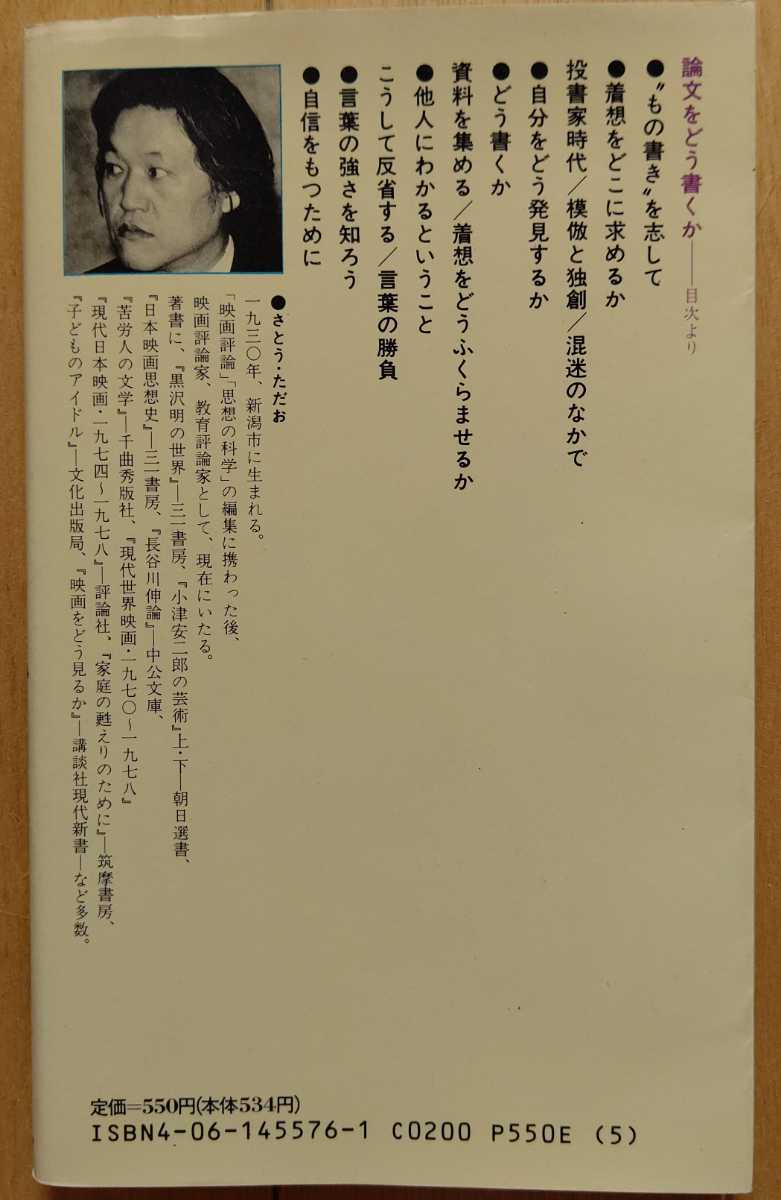 論文をどう書くか――目次より
●〝もの書き〟を志して
●着想をどこに求めるか
投書家時代/模倣と独創/混迷のなかで
●自分をどう発見するか
●どう書くか
資料を集める/着想をどうふくらませるか
●他人にわかるということ
こうして反省する/言葉の勝負
●言葉の強さを知ろう
●自信をもつために
●さとう・ただお
一九三〇年、新潟市に生まれる。
「映画評論」「思想の科学」の編集に携わった後、
映画評論家、教育評論家として、現在にいたる。
著書に、『黒沢明の世界』―三一書房、『小津安二郎の芸術』上・下―朝日選書、
『日本映画思想史』―三一書房、『長谷川伸論』―中公文庫、
『苦労人の文学』―千曲秀版社、『現代世界映画・一九七〇～一九七八』
『現代日本映画・一九七四～一九七八』―評論社、『家庭の甦えりのために』―筑摩書房、
『子どものアイドル』―文化出版局、『映画をどう見るか』―講談社現代新書―など多数。
定価=550円(本体534円)
ISBN4-06-145576-1 C0200 P550E (5)